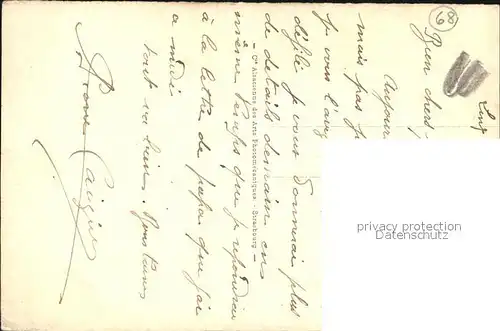 80
Bien chers
Aujour
mais pas
je vous l'
défilé je vous donnerai plus
de détails demain en
même temps que je répondrai
à la lettre de papa que j'ai
à midi
tout va bien. Bons baisers
Pierre
Cie Alsacienne des Arts Photomécaniques. - Strasbourg
privacy protection
Datenschutz